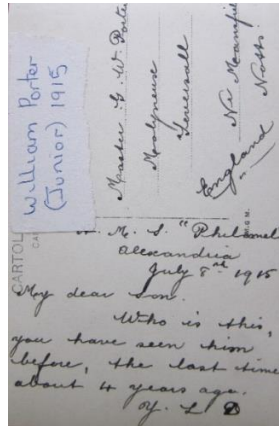 William Porter
(Junior) 1915
CARTOL
Master G. W. Porter
Molyneux
Teversall
Nr Mansfie
Notts.
England
H. M. S. "Philomel
Alexandria
July 8th 1915
My dear Son.
Who is this,
you have seen him
before, the last time
about 4 years ago.
Y. L. D